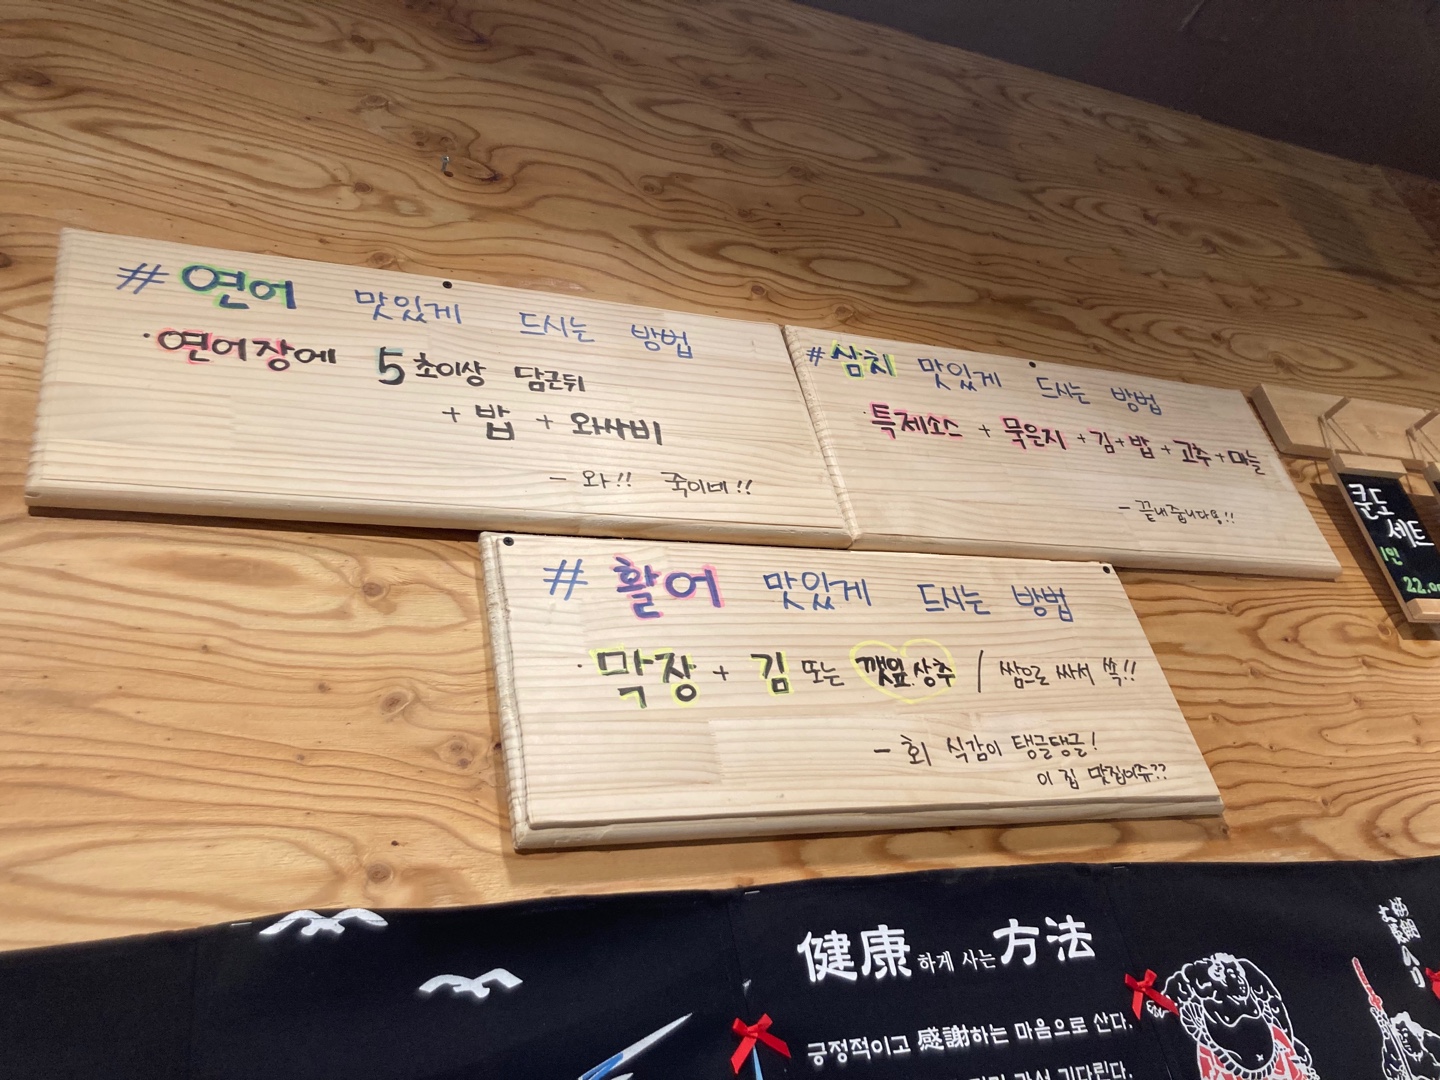 # 연어 맛있게 드시는 방법
· 연어장에 5초이상 담근뒤
+ 밥 + 와사비
- 와!! 죽이네!!
# 삼치 맛있게 드시는 방법
· 특제소스 + 묵은지 + 김 + 밥 + 고추 + 마늘
- 끝내줍니다용!!
# 활어 맛있게 드시는 방법
· 막장 + 김 또는 깻잎.상추 / 쌈으로 싸서 쏙!!
- 회 식감이 탱글탱글!
이 집 맛집이쥬??
쿤도
세트
1인
健康하게 사는方法
긍정적이고 感謝하는 마음으로 산다.
기다린다.